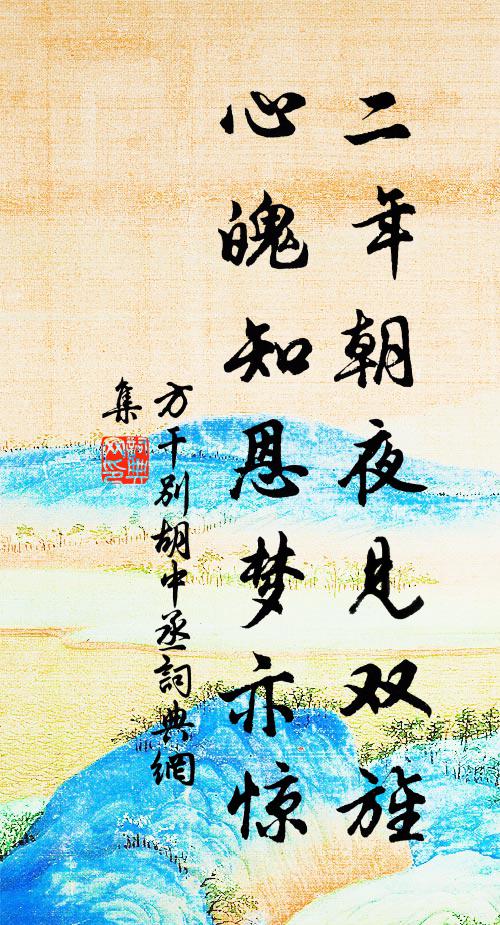 二年朝夜见双旌
心魄知恩梦亦惊
方干别胡中丞詞典網
集